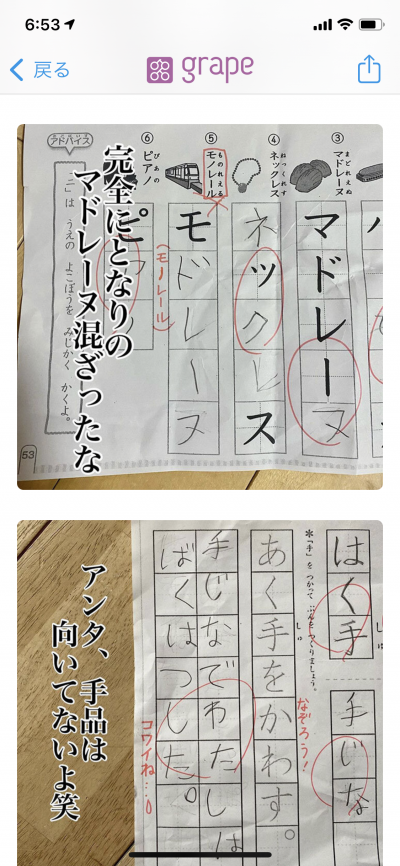 6:53
戻る
grape
アドバイス
⑥
ピアノ
ぴあの
⑤
モノレール
ものれえる
④
ネックレス
ねっくれす
③
マドレーヌ
まどれえぬ
マドレーヌ
ネックレス
モドレーヌ
(モノレール)
完全にとなりの
マドレーヌ混ざったな
ニ」は うえの よこぼうを みじかく かくよ。
53
はく手
しゅ
手じな
*「手」を つかって ぶんを つくりましょう。
あく手をかわす。
しゅ
なぞろう!
手じなでわたしは
ばくはつした。
コワイね…。
アンタ、手品は
向いてないよ笑